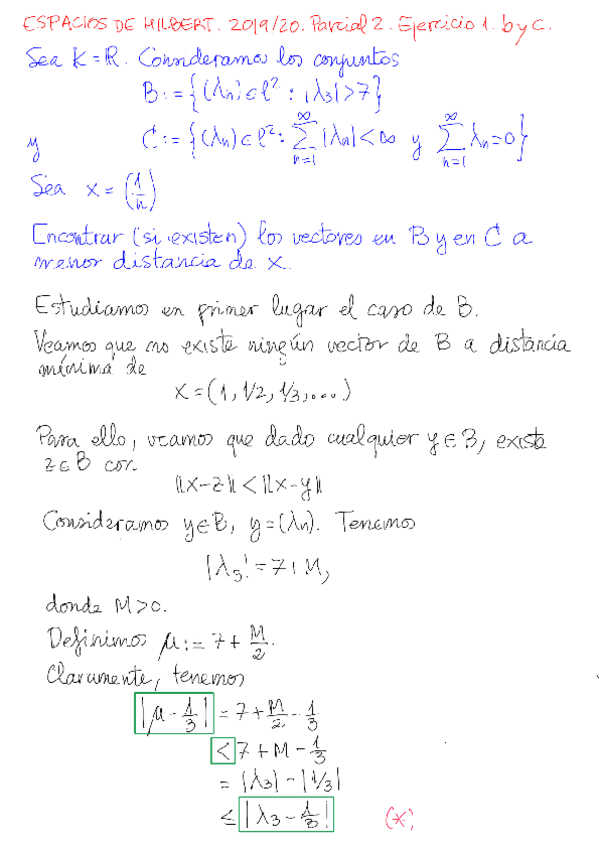 ESPACIOS DE HILBERT. 2019/20. Parcial 2. Ejercicio 1. b y c.
Sea K = ℝ. Consideramos los conjuntos
B := {(λn) ∈ l² : |λ3| > 7}
y C := {(λn) ∈ l² : ∑_{n=1}^∞ |λn| < ∞ y ∑_{n=1}^∞ λn = 0}
Sea x = (1/n)
Encontrar (si existen) los vectores en B y en C a
menor distancia de x.
Estudiamos en primer lugar el caso de B.
Veamos que no existe ningún vector de B a distancia
mínima de
x = (1, 1/2, 1/3, ...)
Para ello, veamos que dado cualquier y ∈ B, existe
z ∈ B con
||x - z|| < ||x - y||
Consideramos y ∈ B, y = (λn). Tenemos
|λ3| = 7 + M,
donde M > 0.
Definimos μ := 7 + M/2.
Claramente, tenemos
|μ - 1/3| = 7 + M/2 - 1/3
< 7 + M - 1/3
= |λ3| - |1/3|
≤ |λ3 - 1/3| (*)